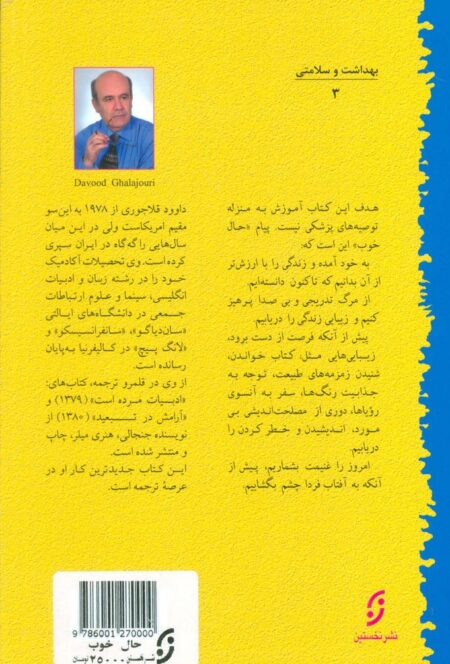 بهداشت و سلامتی
۳
هدف این کتاب آموزش به منزله
توصیه‌های پزشکی نیست. پیام «حال
خوب» این است که:
به خود آمده و زندگی را با ارزش‌تر
از آن بدانیم که تاکنون دانسته‌ایم.
از مرگ تدریجی و بی صدا پرهیز
کنیم و زیبایی زندگی را دریابیم.
پیش از آنکه فرصت از دست برود،
زیبایی‌هایی مثل: کتاب خواندن،
شنیدن زمزمه‌های طبیعت، توجه به
جذابیت رنگ‌ها، سفر به آنسوی
رؤیاها، دوری از مصلحت‌اندیشی بی
مورد، اندیشیدن و خطر کردن را
دریابیم.
امروز را غنیمت بشماریم، پیش از
آنکه به آفتاب فردا چشم بگشاییم.
Davood Ghalajouri
داوود قلاجوری از ۱۹۷۸ به این‌سو
مقیم آمریکاست ولی در این میان
سال‌هایی را گه‌گاه در ایران سپری
کرده است. وی تحصیلات آکادمیک
خود را در رشته زبان و ادبیات
انگلیسی، سینما و علوم ارتباطات
جمعی در دانشگاه‌های ایالتی
«سان‌دیاگو»، «سانفرانسیسکو» و
«لانگ بیچ» در کالیفرنیا به‌پایان
رسانده است.
از وی در قلمرو ترجمه، کتاب‌های:
«ادبیات مرده است» (۱۳۷۹) و
«آرامش در تبعید» (۱۳۸۰) از
نویسنده جنجالی، هنری میلر، چاپ
و منتشر شده است.
این کتاب جدیدترین کار او در
عرصهٔ ترجمه است.
9 786001 270000
حال خوب
۲۵۰۰۰ تومان
نشر نخستین